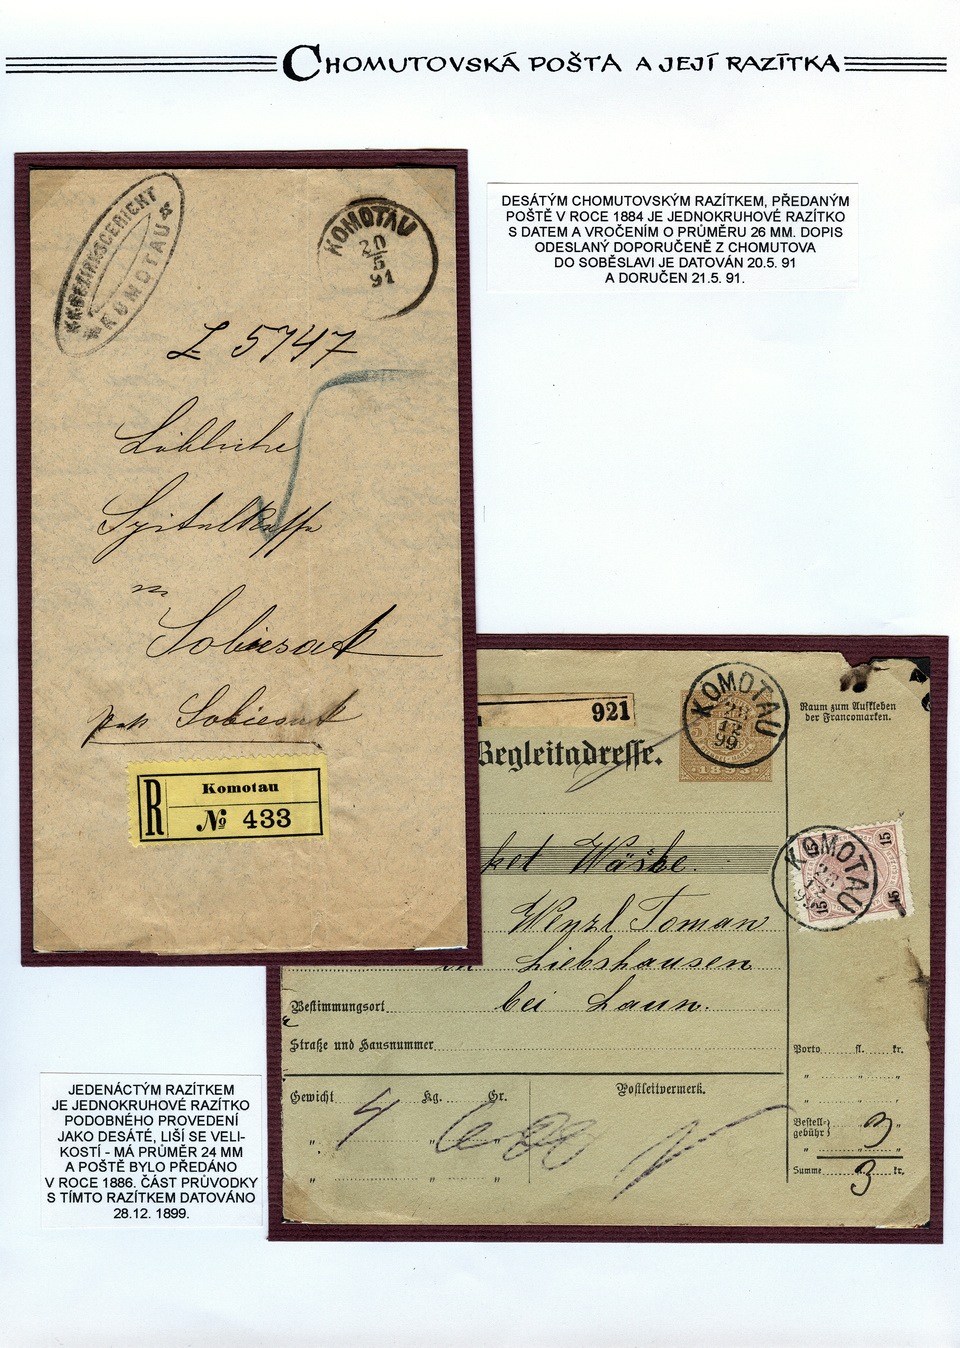 CHOMUTOVSKÁ POŠTA A JEJÍ RAZÍTKA
DESÁTÝM CHOMUTOVSKÝM RAZÍTKEM, PŘEDANÝM
POŠTĚ V ROCE 1884 JE JEDNOKRUHOVÉ RAZÍTKO
S DATEM A VROČENÍM O PRŮMĚRU 26 MM. DOPIS
ODESLANÝ DOPORUČENĚ Z CHOMUTOVA
DO SOBĚSLAVI JE DATOVÁN 20.5. 91
A DORUČEN 21.5. 91.
KK BEZIRKSGERICHT
KOMOTAU
KOMOTAU
20
5
91
Z 5747
Löbliche
Spitalkassa
in
Sobiesak
Post Sobiesak
R
Komotau
№ 433
921
KOMOTAU
28
12
99
Begleitadresse.
1893
Raum zum Aufkleben
der Francomarken.
KOMOTAU
28
12
99
15
15
15
15
ket Wäsche.
Wenzl Toman
in Liebshausen
Bestimmungsort bei Laun.
Straße und Hausnummer
Gewicht Kg. Gr.
Postleitvermerk.
4
Porto fl. kr.
Bestell-
gebühr 3
Summe 3 kr.
JEDENÁCTÝM RAZÍTKEM
JE JEDNOKRUHOVÉ RAZÍTKO
PODOBNÉHO PROVEDENÍ
JAKO DESÁTÉ, LIŠÍ SE VELI-
KOSTÍ - MÁ PRŮMĚR 24 MM
A POŠTĚ BYLO PŘEDÁNO
V ROCE 1886. ČÁST PRŮVODKY
S TÍMTO RAZÍTKEM DATOVÁNO
28.12. 1899.